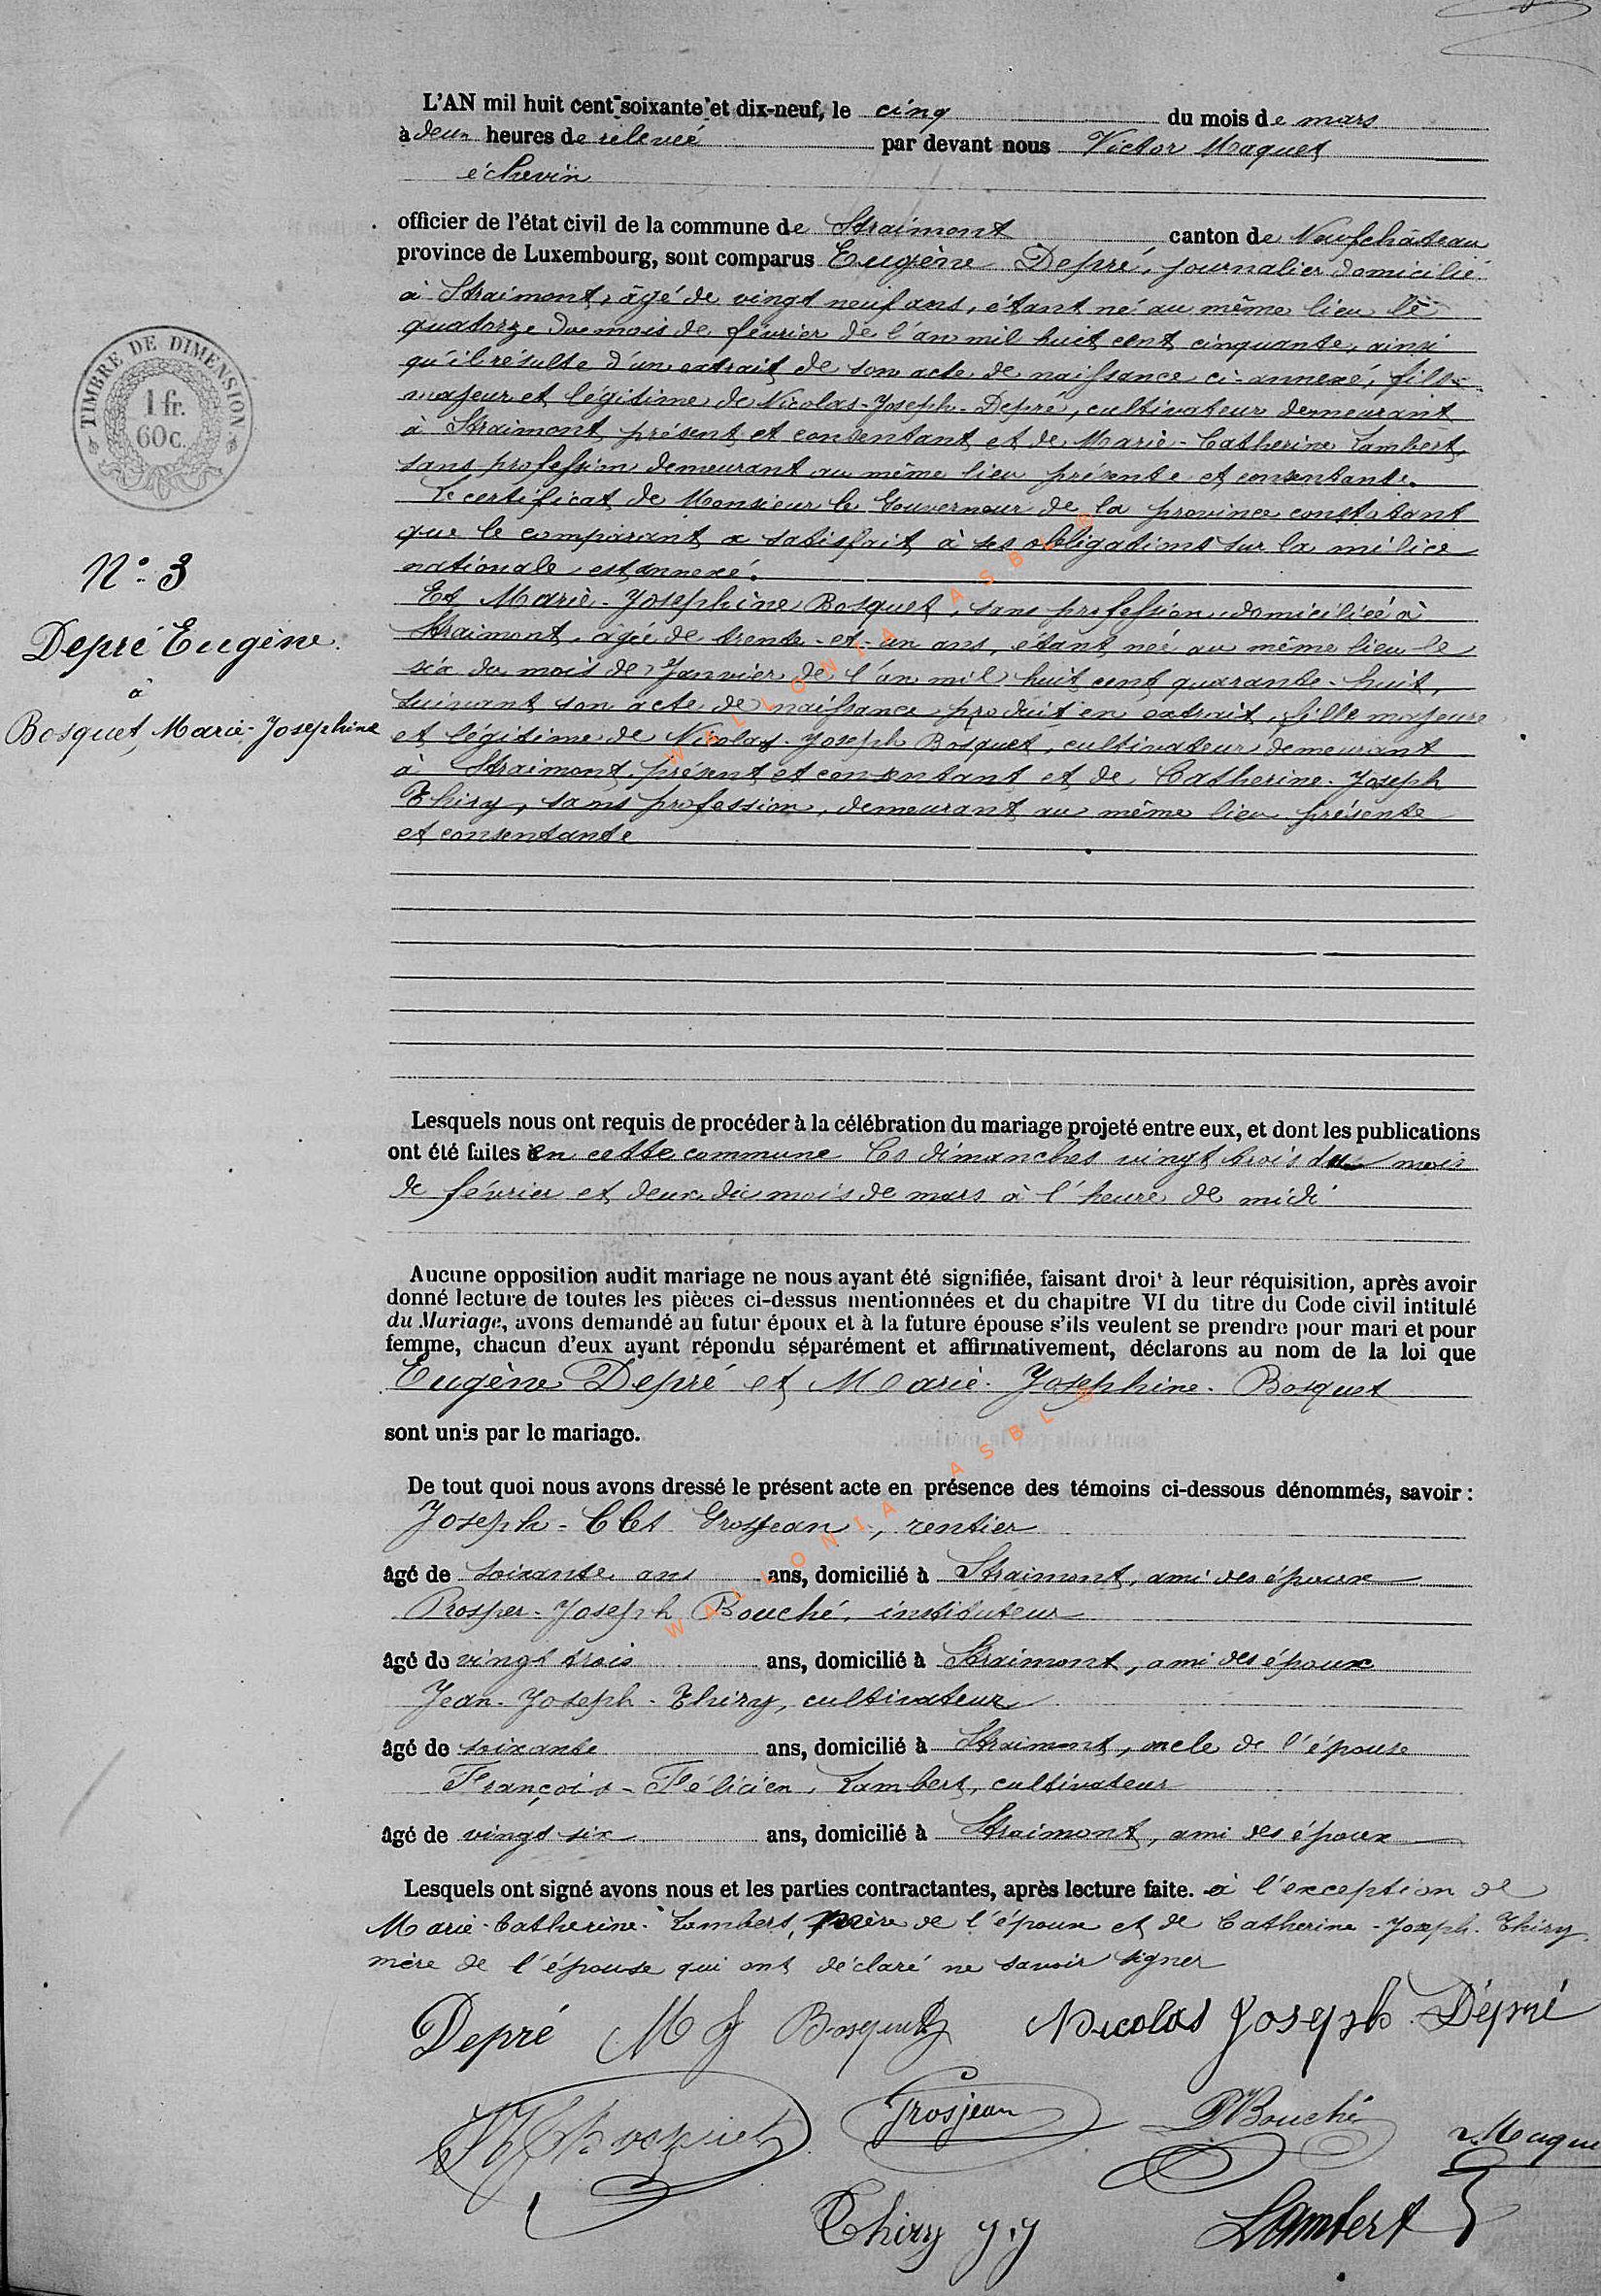 L'AN mil huit cent soixante et dix-neuf, le cinq du mois de mars
à deux heures de relevée par devant nous Victor Maquet
échevin
officier de l'état civil de la commune de Straimont canton de Neufchâteau
province de Luxembourg, sont comparus Eugène Depré, journalier domicilié
à Straimont, âgé de vingt neuf ans, étant né au même lieu le
quatorze du mois de février de l'an mil huit cent cinquante, ainsi
qu'il résulte d'un extrait de son acte de naissance ci-annexé, fils
majeur et légitime de Nicolas-Joseph-Depré, cultivateur demeurant
à Straimont, présent et consentant et de Marie-Catherine Lambert,
sans profession demeurant au même lieu présente et consentante.
Le certificat de Monsieur le Gouverneur de la province constatant
que le comparant a satisfait à ses obligations sur la milice
nationale est annexé.
Et Marie-Josephine Bosquet, sans profession domiciliée à
Straimont, âgée de trente-et-un ans, étant née au même lieu le
six du mois de Janvier de l'an mil huit cent quarante-huit,
suivant son acte de naissance produit en extrait, fille majeure
et légitime de Nicolas-Joseph Bosquet, cultivateur demeurant
à Straimont, présent et consentant et de Catherine-Joseph
Thiry, sans profession, demeurant au même lieu présente
et consentante
TIMBRE DE DIMENSION
1 fr.
60 c.
N° 3
Depré Eugène
à
Bosquet, Marie-Josephine
Lesquels nous ont requis de procéder à la célébration du mariage projeté entre eux, et dont les publications
ont été faites en cette commune les dimanches vingt trois du mois
de février et deux du mois de mars à l'heure de midi
Aucune opposition audit mariage ne nous ayant été signifiée, faisant droit à leur réquisition, après avoir
donné lecture de toutes les pièces ci-dessus mentionnées et du chapitre VI du titre du Code civil intitulé
du Mariage, avons demandé au futur époux et à la future épouse s'ils veulent se prendre pour mari et pour
femme, chacun d'eux ayant répondu séparément et affirmativement, déclarons au nom de la loi que
Eugène Depré et Marie-Josephine-Bosquet
sont unis par le mariage.
De tout quoi nous avons dressé le présent acte en présence des témoins ci-dessous dénommés, savoir :
Joseph- Grosjean, rentier
âgé de soixante ans ans, domicilié à Straimont, ami des époux
Prosper-Joseph Bouché, instituteur
âgé de vingt trois ans, domicilié à Straimont, ami des époux
Jean-Joseph-Thiry, cultivateur
âgé de soixante ans, domicilié à Straimont, oncle de l'épouse
François-Félicien, Lambert, cultivateur
âgé de vingt six ans, domicilié à Straimont, ami des époux
Lesquels ont signé avons nous et les parties contractantes, après lecture faite. à l'exception de
Marie-Catherine-Lambert, mère de l'époux et de Catherine-Joseph-Thiry
mère de l'épouse qui ont déclaré ne savoir signer
Depré M J Bosquet Nicolas Joseph Dépré
Bosquet Grosjean P Bouché Maque
Thiry J. J Lambert
WALLONIA ASBL ©
WALLONIA ASBL ©